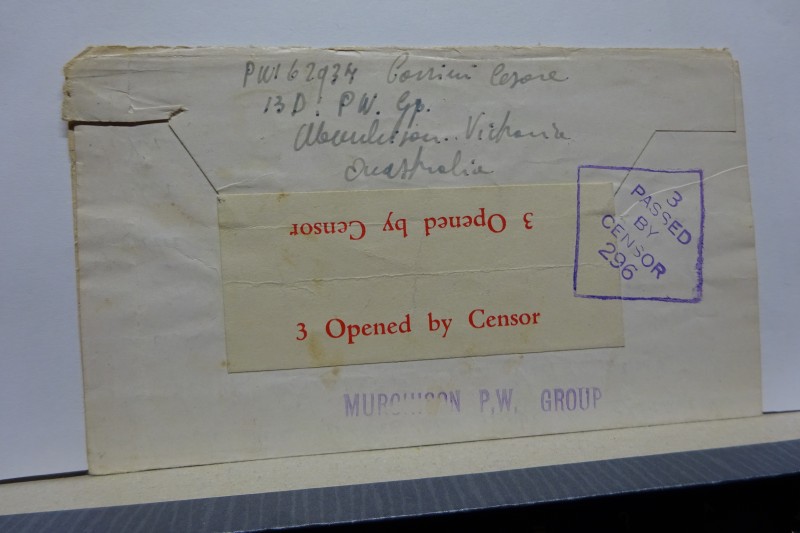 PWI 62934 Cesare
13 D. P.W. Gp.
Murchison. Victoria
Australia
3 Opened by Censor
3 Opened by Censor
3
PASSED
BY
CENSOR
296
MURCHISON P.W. GROUP